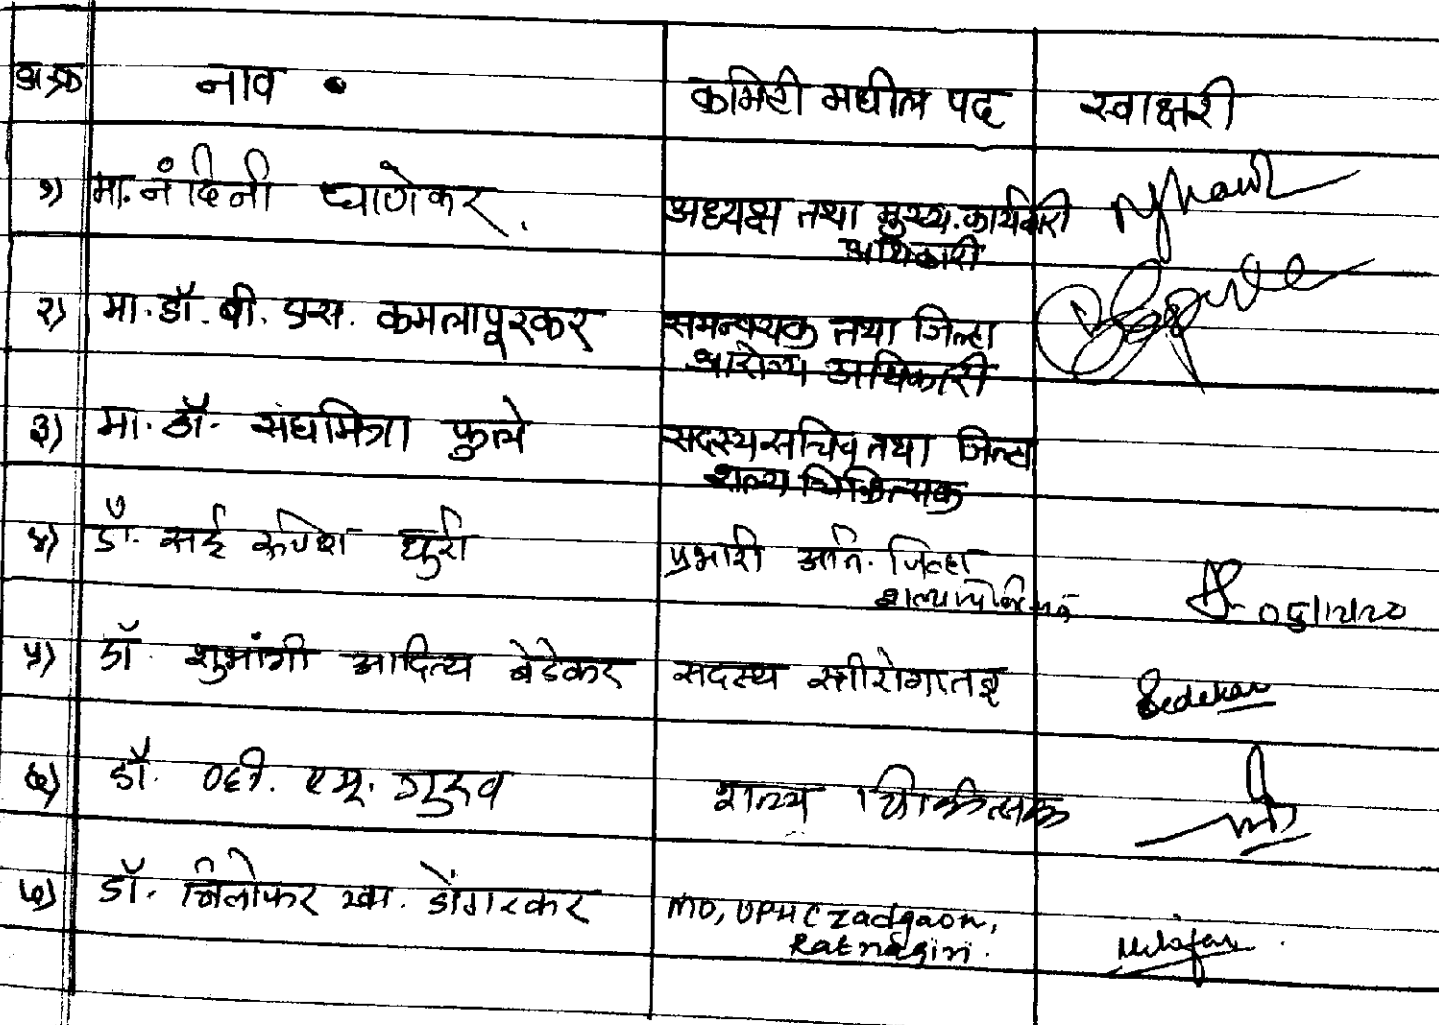 अ.क्र नाव कमिटी मधील पद स्वाक्षरी
१) मा. नंदिनी घाणेकर. अध्यक्ष तथा मुख्य. कार्यकारी
अधिकारी
२) मा. डॉ. बी. एस. कमलापूरकर समन्वयक तथा जिल्हा
आरोग्य अधिकारी
३) मा. डॉ. संघमित्रा फुले सदस्य सचिव तथा जिल्हा
शल्य चिकित्सक
४) डॉ. सई धुरी प्रभारी अति. जिल्हा
५) डॉ. शुभांगी आदित्य बेडेकर सदस्य स्त्रीरोगतज्ञ Bedekar
६) डॉ. व्ही. एम. गुरव शल्य चिकित्सक
७) डॉ. निलोफर डोंगरकर MO, UPHC zadgaon,
Ratnagiri.